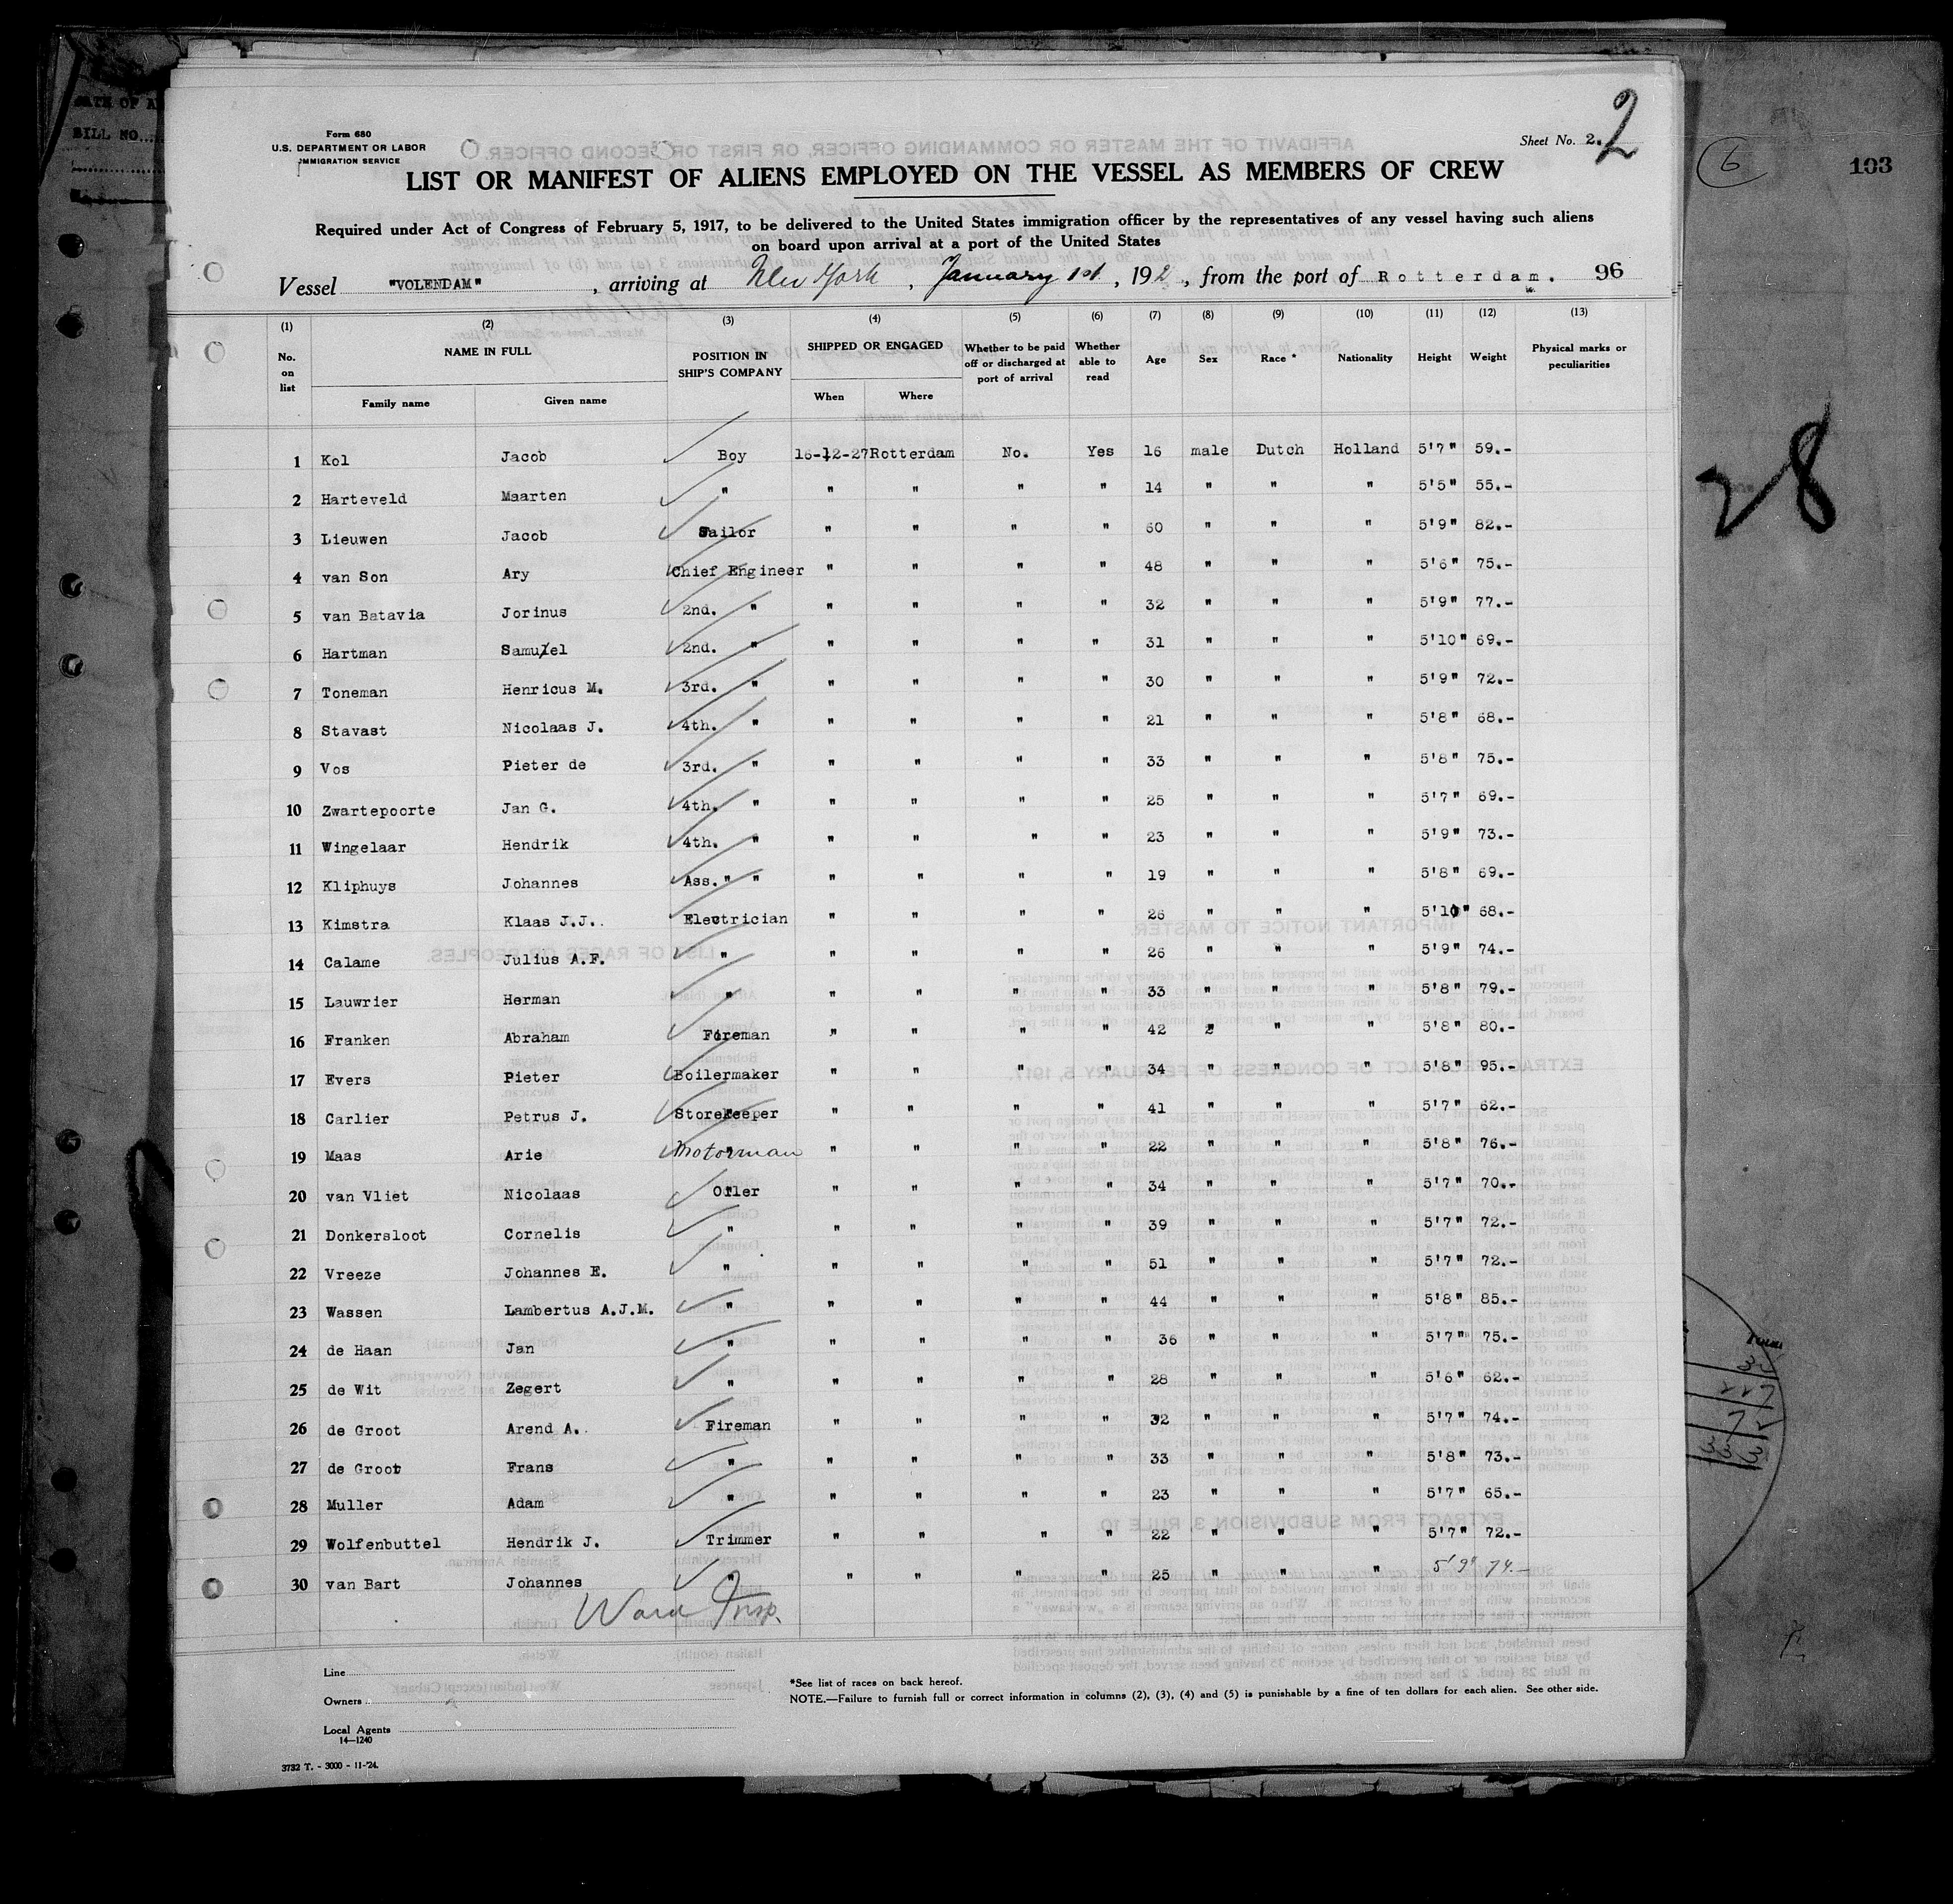 DATE OF A
BILL NO.
Form 680
U.S. DEPARTMENT OR LABOR
IMMIGRATION SERVICE
Sheet No. 2.
2
6
103
LIST OR MANIFEST OF ALIENS EMPLOYED ON THE VESSEL AS MEMBERS OF CREW
Required under Act of Congress of February 5, 1917, to be delivered to the United States immigration officer by the representatives of any vessel having such aliens
on board upon arrival at a port of the United States
Vessel "VOLENDAM" , arriving at New York , January 1st , 192 , from the port of Rotterdam. 96
(1) (2) (3) (4) (5) (6) (7) (8) (9) (10) (11) (12) (13)
No. on list NAME IN FULL Family name Given name POSITION IN SHIP'S COMPANY SHIPPED OR ENGAGED When Where Whether to be paid off or discharged at port of arrival Whether able to read Age Sex Race * Nationality Height Weight Physical marks or peculiarities
1 Kol Jacob Boy 16-12-27 Rotterdam No. Yes 16 male Dutch Holland 5'7" 59.-
2 Harteveld Maarten " " " " " 14 " " " 5'5" 55.-
3 Lieuwen Jacob Sailor " " " " 60 " " " 5'9" 82.-
4 van Son Ary Chief Engineer " " " " 48 " " " 5'6" 75.-
5 van Batavia Jorinus 2nd. " " " " " 32 " " " 5'9" 77.-
6 Hartman Samuel 2nd. " " " " " 31 " " " 5'10" 69.-
7 Toneman Henricus M. 3rd. " " " " " 30 " " " 5'9" 72.-
8 Stavast Nicolaas J. 4th. " " " " " 21 " " " 5'8" 68.-
9 Vos Pieter de 3rd. " " " " " 33 " " " 5'8" 75.-
10 Zwartepoorte Jan G. 4th. " " " " " 25 " " " 5'7" 69.-
11 Wingelaar Hendrik 4th. " " " " " 23 " " " 5'9" 73.-
12 Kliphuys Johannes Ass." " " " " " 19 " " " 5'8" 69.-
13 Kimstra Klaas J.J. Electrician " " " " 26 " " " 5'10" 68.-
14 Calame Julius A.F. " " " " " 26 " " " 5'9" 74.-
15 Lauwrier Herman " " " " " 33 " " " 5'8" 79.-
16 Franken Abraham Foreman " " " " 42 " " " 5'8" 80.-
17 Evers Pieter Boilermaker " " " " 34 " " " 5'8" 95.-
18 Carlier Petrus J. Storekeeper " " " " 41 " " " 5'7" 62.-
19 Maas Arie Motorman " " " " 22 " " " 5'8" 76.-
20 van Vliet Nicolaas Oiler " " " " 34 " " " 5'7" 70.-
21 Donkersloot Cornelis " " " " " 39 " " " 5'7" 72.-
22 Vreeze Johannes E. " " " " " 51 " " " 5'7" 72.-
23 Wassen Lambertus A.J.M. " " " " " 44 " " " 5'8" 85.-
24 de Haan Jan " " " " " 36 " " " 5'7" 75.-
25 de Wit Zegert " " " " " 28 " " " 5'6" 62.-
26 de Groot Arend A. Fireman " " " " 32 " " " 5'7" 74.-
27 de Groot Frans " " " " " 33 " " " 5'8" 73.-
28 Muller Adam " " " " " 23 " " " 5'7" 65.-
29 Wolfenbuttel Hendrik J. Trimmer " " " " 22 " " " 5'7" 72.-
30 van Bart Johannes " " " " " 25 " " " 5'9" 74.-
Ward Insp.
28
Line
Owners
Local Agents
14—1240
*See list of races on back hereof.
NOTE.—Failure to furnish full or correct information in columns (2), (3), (4) and (5) is punishable by a fine of ten dollars for each alien. See other side.
3732 T. - 3000 - 11-'24.